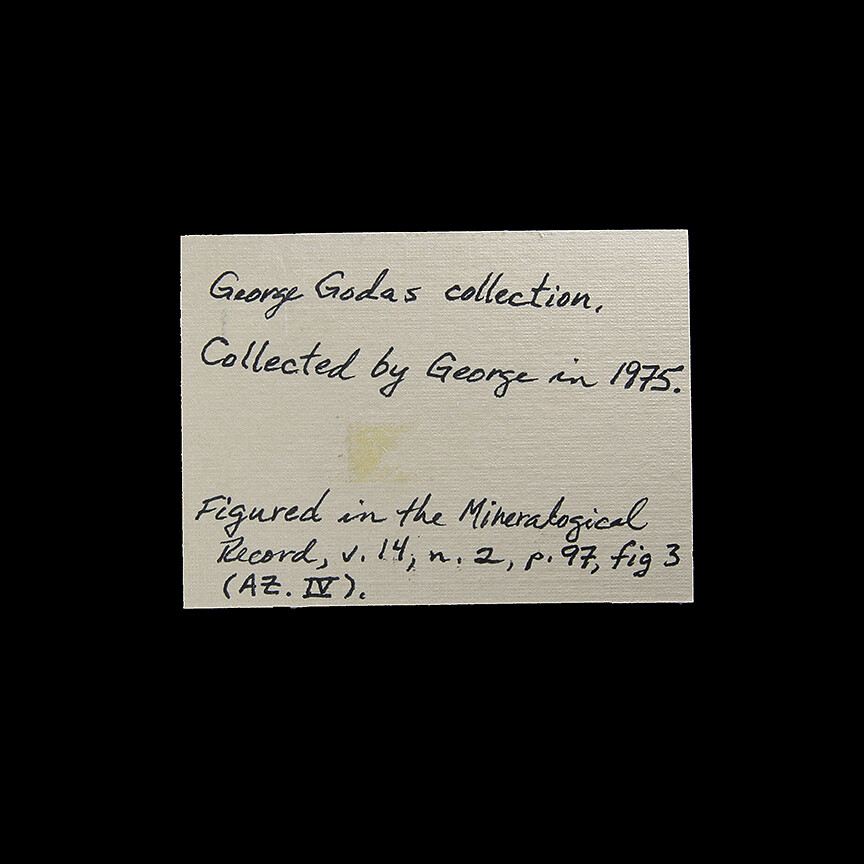 George Godas collection.
Collected by George in 1975.
Figured in the Mineralogical
Record, v. 14, n. 2, p. 97, fig 3
(AZ. IV).